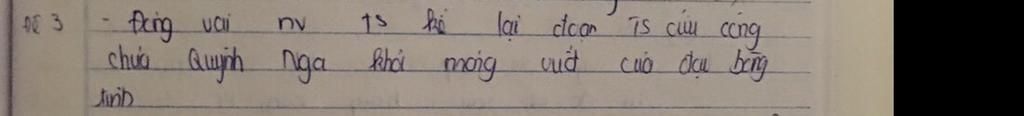 Đề 3 - Đóng vai nv TS kể lại đoạn TS cứu công
chúa Quỳnh Nga khỏi móng vuốt của đại bàng
tinh